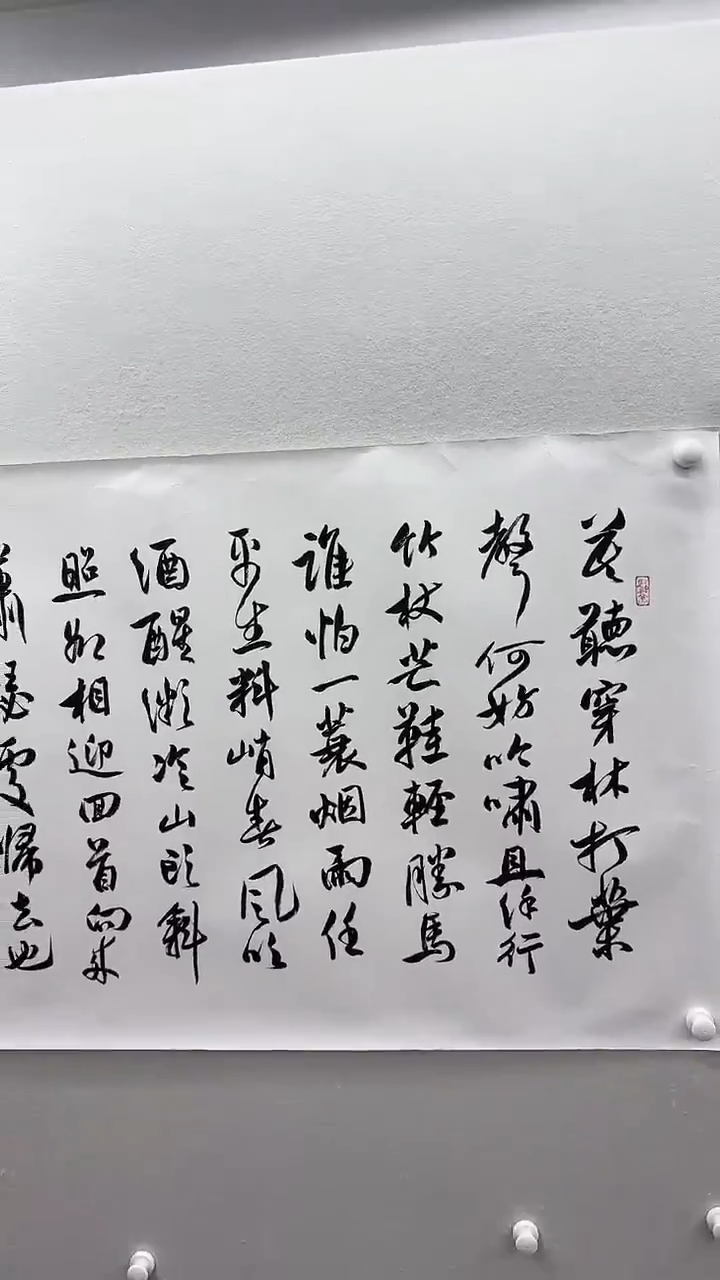 莫聽穿林打葉
聲何妨吟嘯且徐行
竹杖芒鞋輕勝馬
誰怕一蓑烟雨任
平生料峭春風吹
酒醒微冷山頭斜
照却相迎回首向来
蕭瑟處歸去也